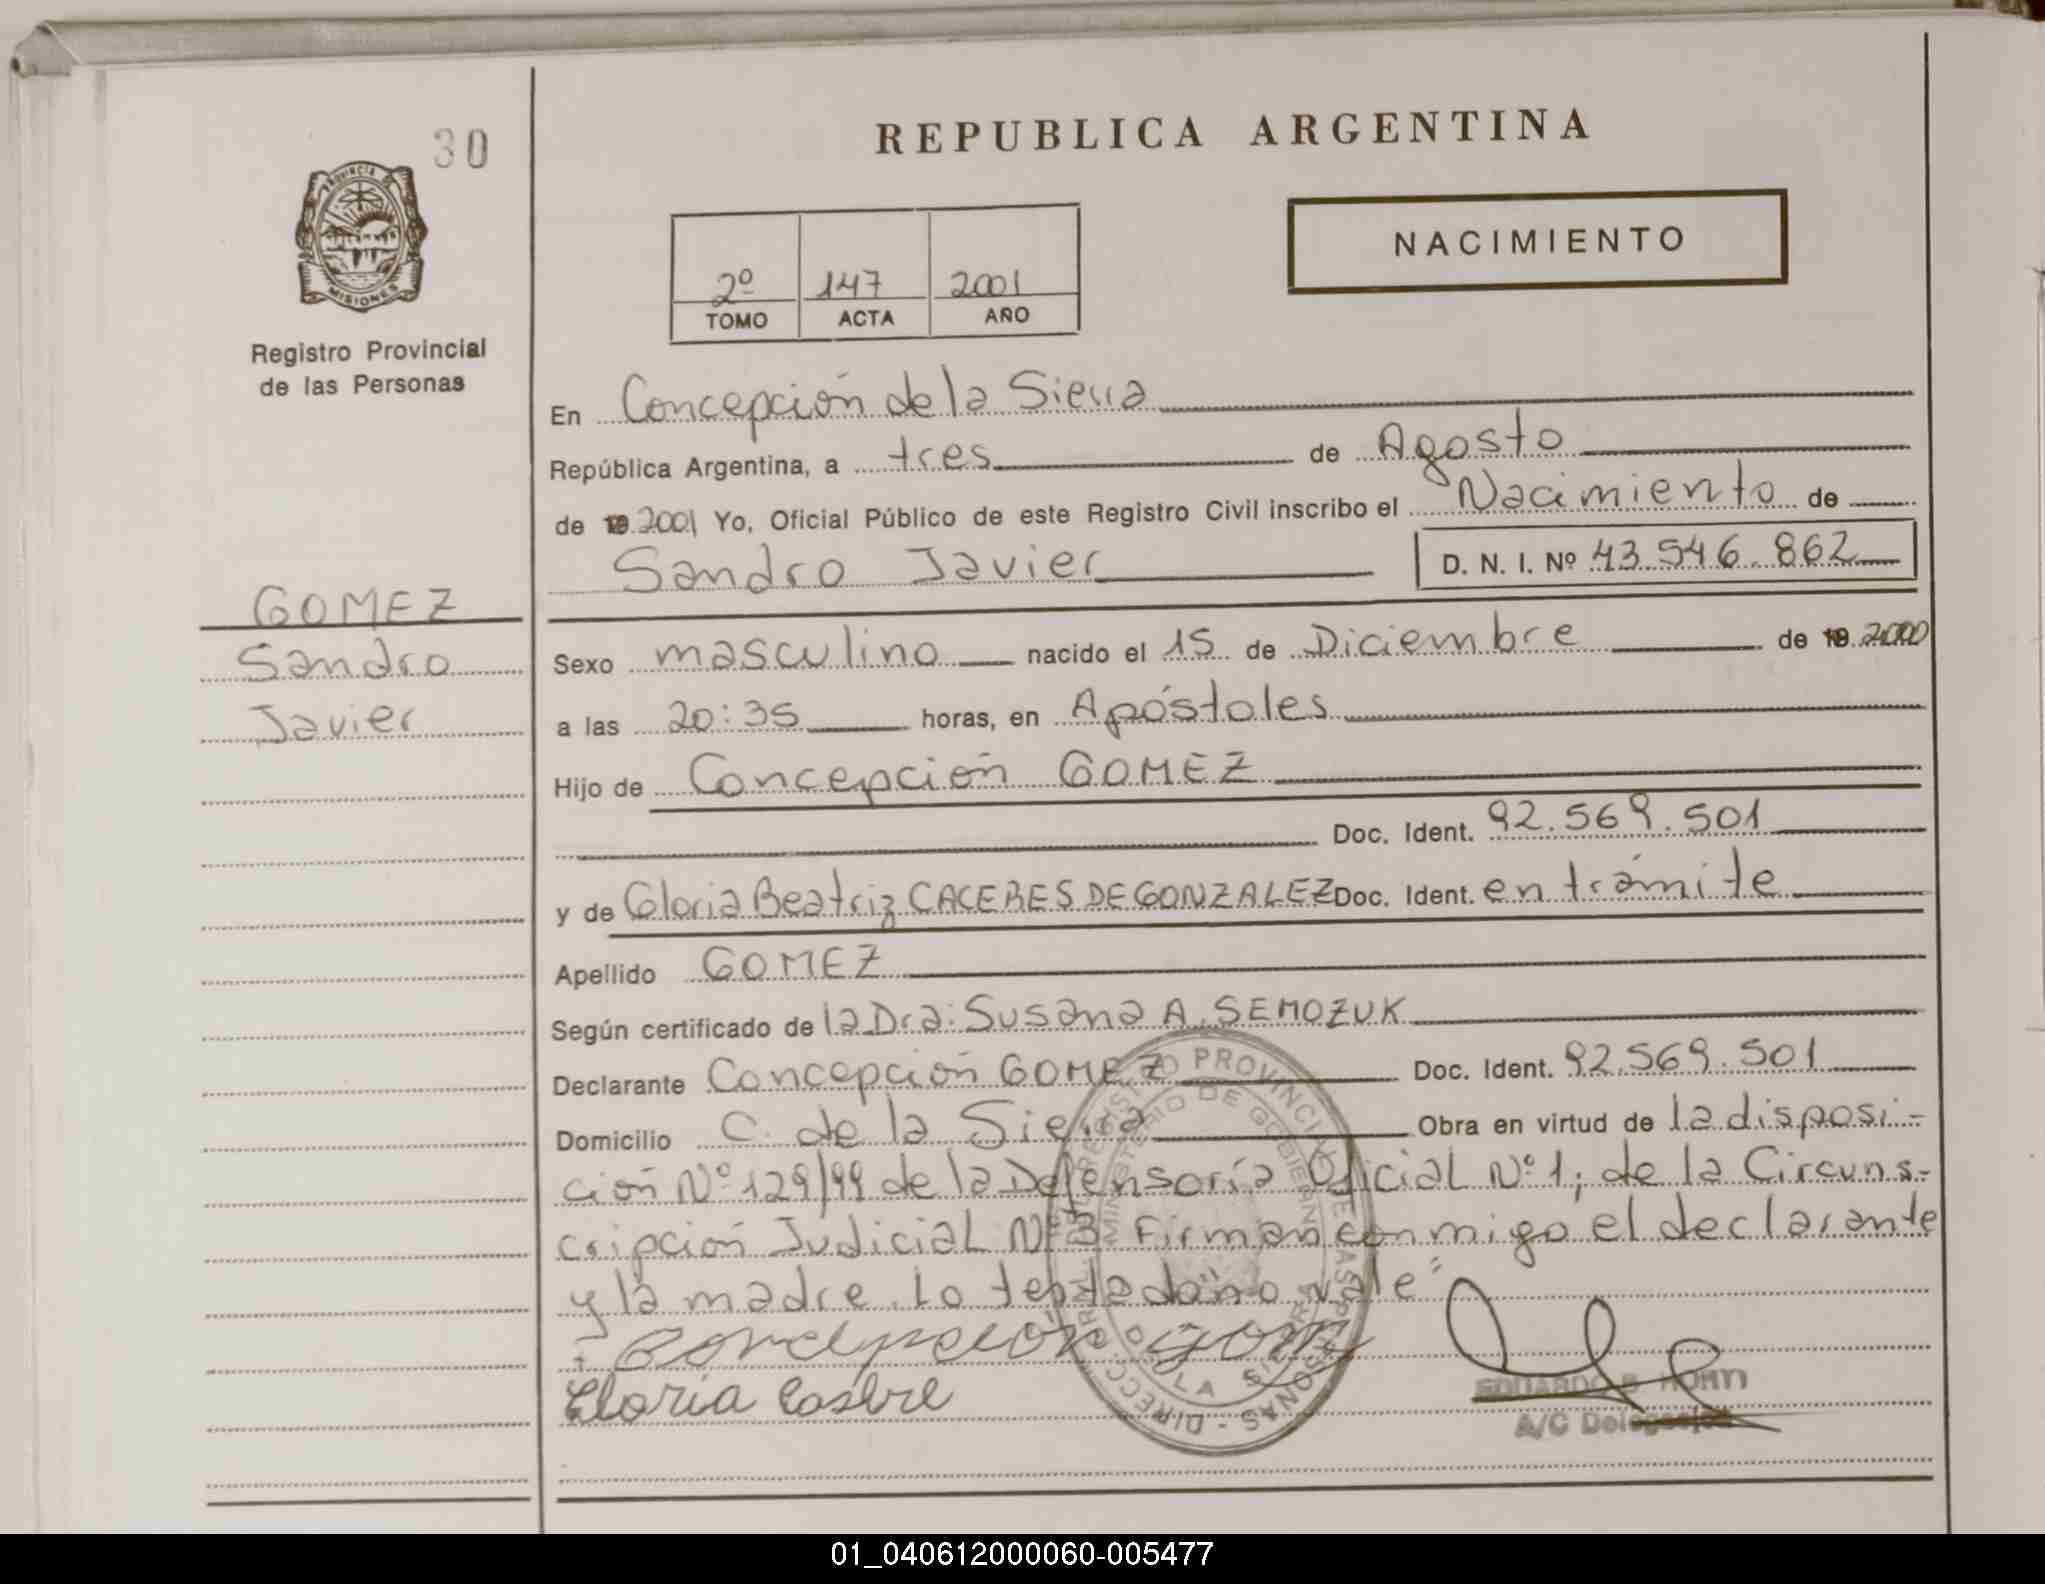 30
REPUBLICA ARGENTINA
PROVINCIA DE
MISIONES
Registro Provincial
de las Personas
2º 147 2001
TOMO ACTA AÑO
NACIMIENTO
En Concepción de la Sierra
República Argentina, a tres de Agosto
de 19 2001 Yo, Oficial Público de este Registro Civil inscribo el Nacimiento de
Sandro Javier D. N. I. Nº 43.546.862
GOMEZ
Sandro
Javier
Sexo masculino nacido el 15 de Diciembre de 19 2000
a las 20:35 horas, en Apóstoles
Hijo de Concepción GOMEZ
Doc. Ident. 92.569.501
y de Gloria Beatriz CACERES DE GONZALEZ Doc. Ident. en trámite
Apellido GOMEZ
Según certificado de la Dra: Susana A. SEMOZUK
Declarante Concepción GOMEZ Doc. Ident. 92.569.501
Domicilio C. de la Sierra Obra en virtud de la disposi-
ción Nº 129/99 de la Defensoría Oficial Nº 1; de la Circuns-
cripción Judicial Nº 3 Firman conmigo el declarante
y la madre. Lo testado "no vale"
Concepción Gom
Gloria
EDUARDO B.
A/C Delegación
REGISTRO PROVINCIAL DE LAS PERSONAS - DIRECC. GRAL.
MINISTERIO DE GOBIERNO
C. DE LA SIERRA
01_040612000060-005477